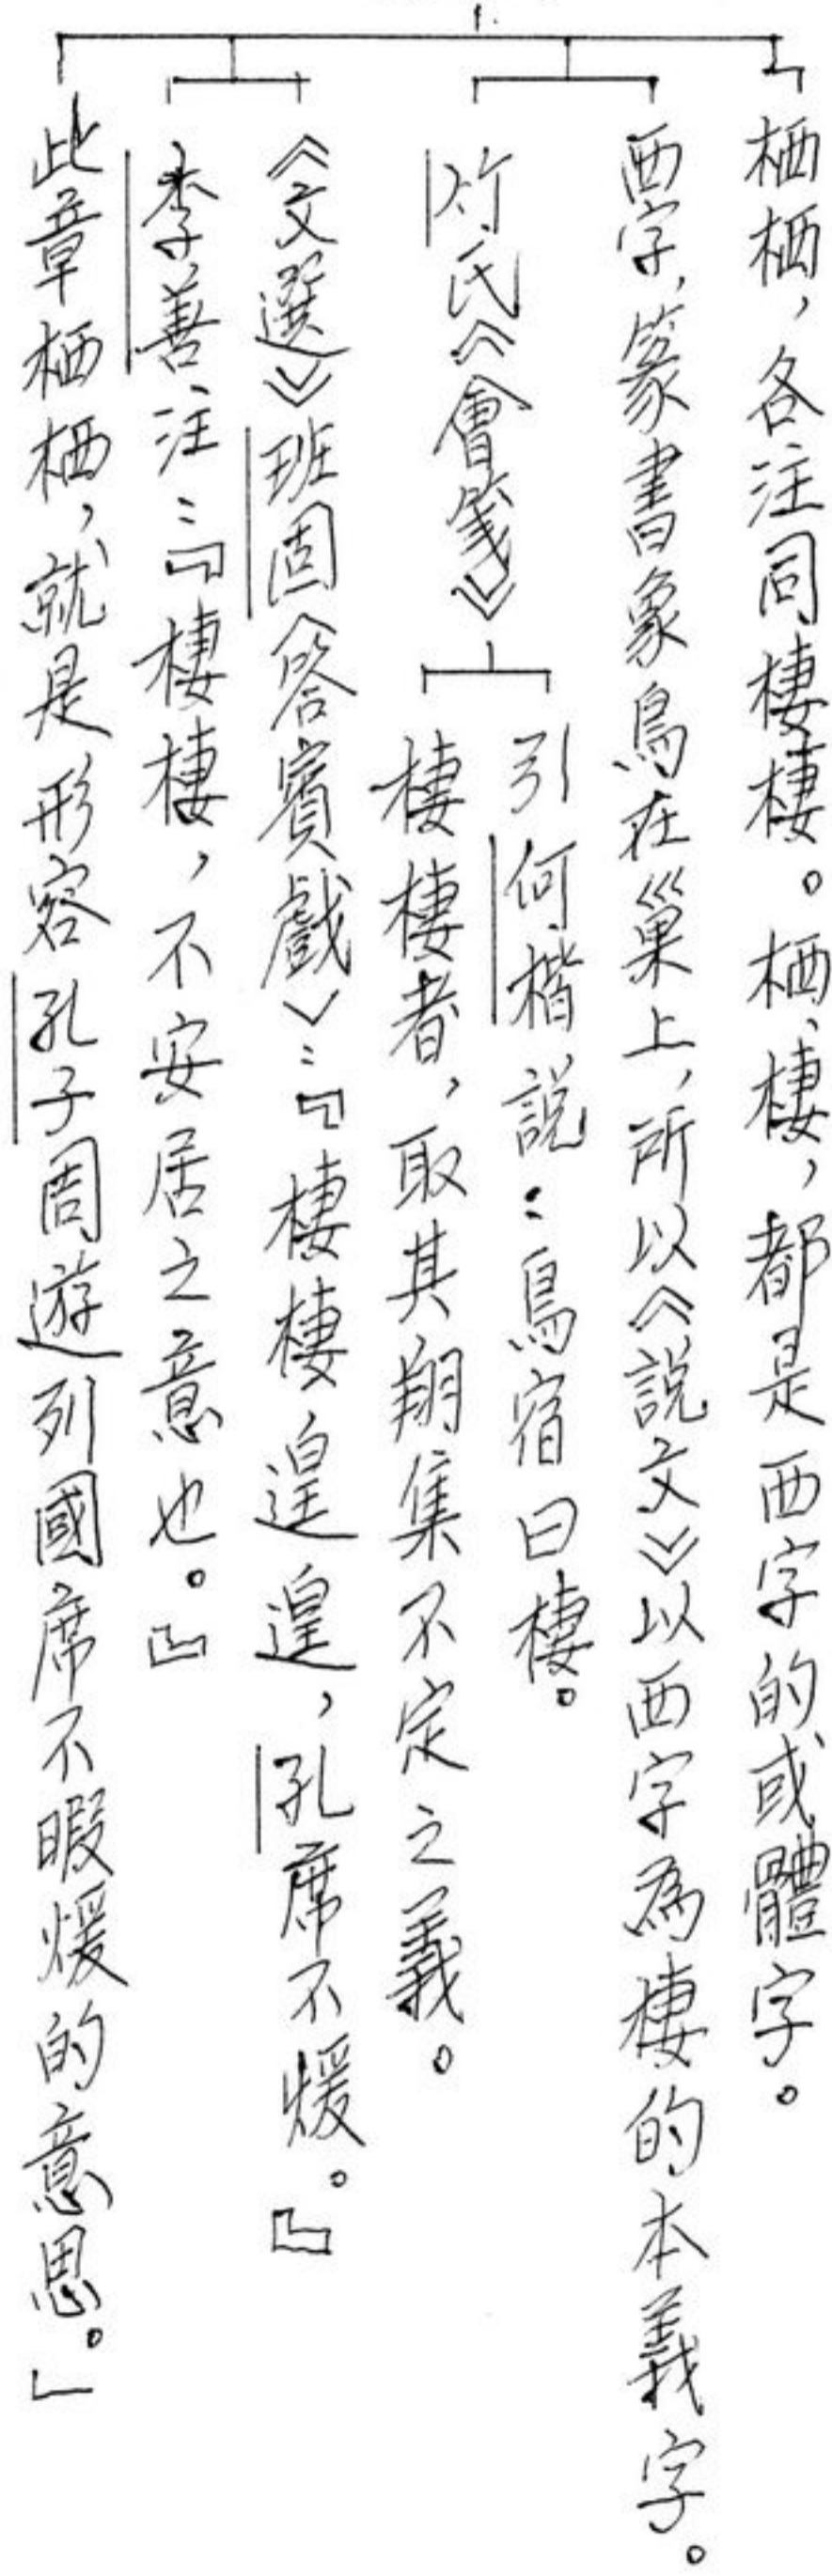 「栖栖，各注同棲棲。栖、棲，都是西字的或體字。
西字，篆書象鳥在巢上，所以《說文》以西字為棲的本義字。
竹氏《會箋》
引何楷說：鳥宿曰棲。
棲棲者，取其翔集不定之義。
《文選》班固答賓戲〉：『棲棲遑遑，孔席不煖。』
李善注：『棲棲，不安居之意也。』
此章栖栖，就是形容孔子周遊列國席不暇煖的意思。」